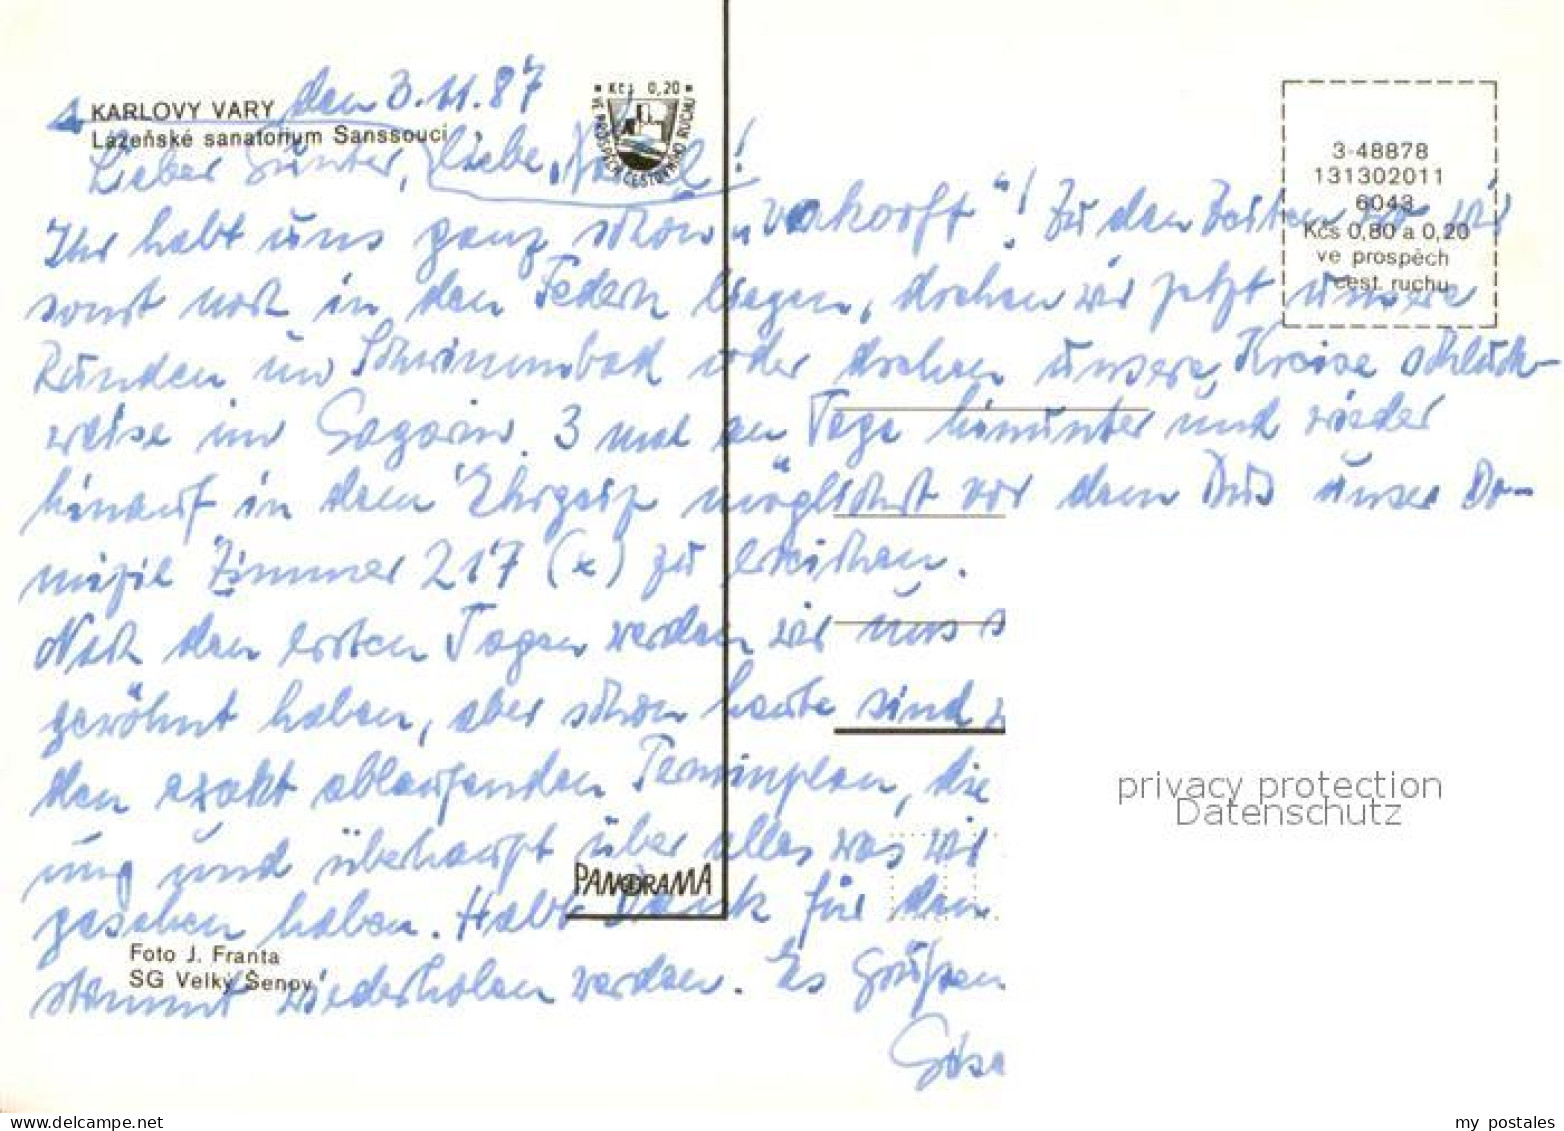 KARLOVY VARY den 3.11.87
Lázeňské sanatorium Sanssouci
Kčs 0,20
VE PROSPĚCH CESTOVNÍHO RUCHU
Lieber Günter, liebe
Ihr habt uns ganz schön „verkorkst“! Zu den Zeiten wo wir
sonst noch in den Federn liegen, drehen wir jetzt unsere
Runden im Schwimmbad oder drehen unsere Kreise schluck-
weise im Gagarin. 3 mal am Tage hinunter und wieder
hinauf in dem Ehrgeiz möglichst vor dem Bus unser Do-
mizil Zimmer 217 (x) zu erreichen.
Nach den ersten Tagen werden wir uns s
gewöhnt haben, aber schon heute sind w
den exakt ablaufenden Terminplan, die
ung und überhaupt über alles was wir
gesehen haben. Habt Dank für den
stimmt wiederholen werden. Es Grüßen
3-48878
131302011
6043
Kčs 0,80 a 0,20
ve prospěch
cest. ruchu
PANORAMA
Foto J. Franta
SG Velký Šenov
privacy protection
Datenschutz
www.delcampe.net
my postales